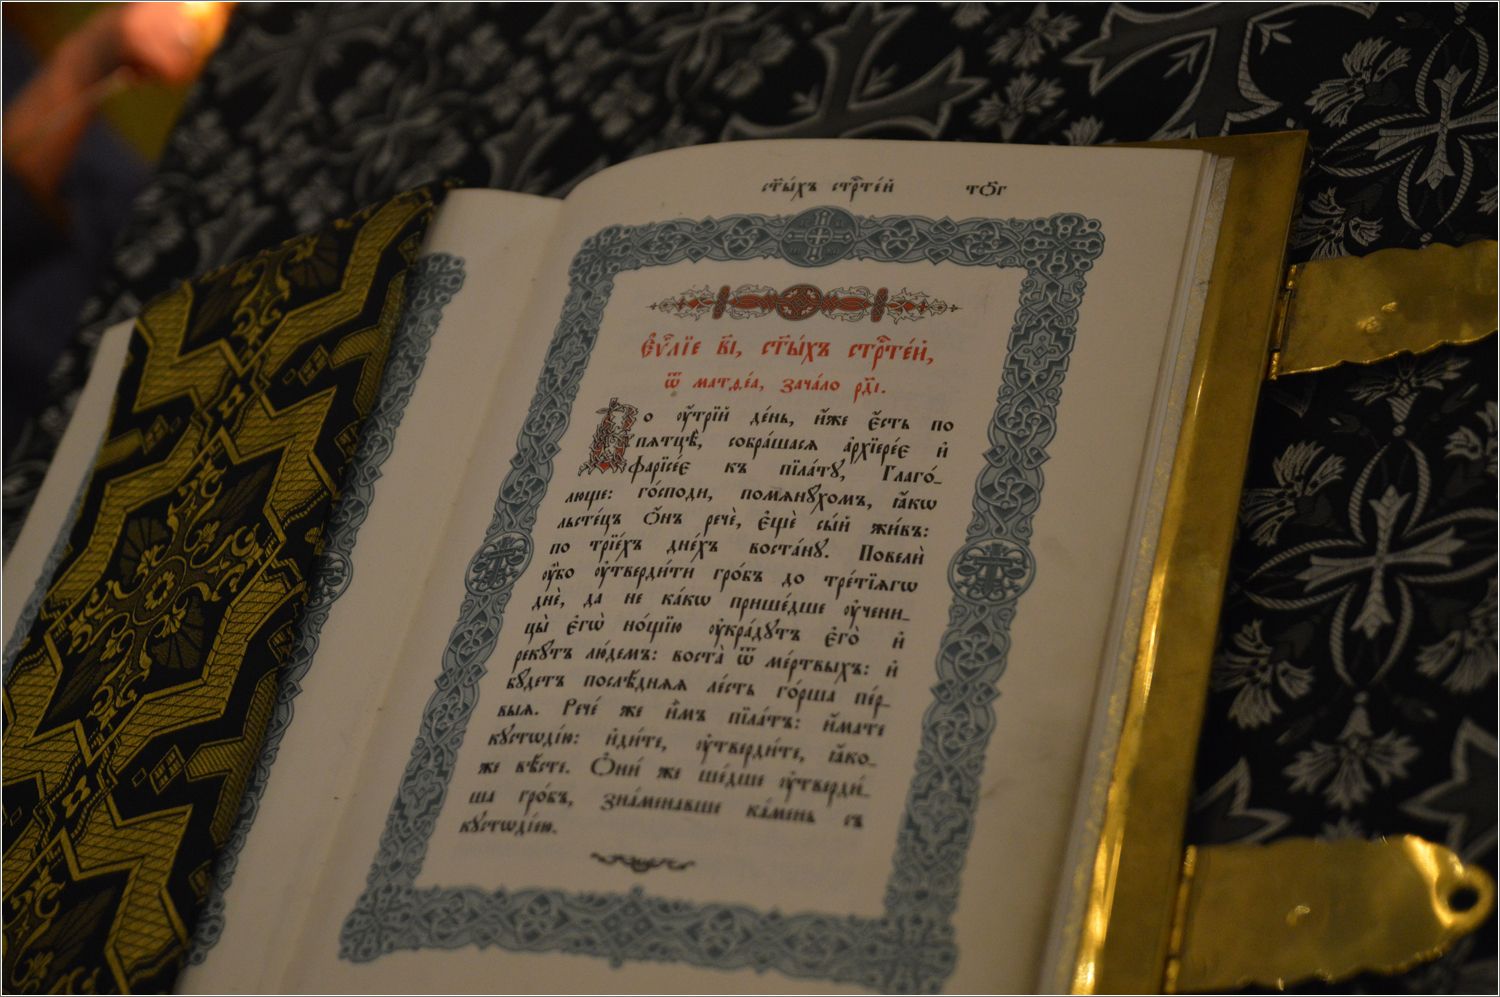 ст҃ы́хъ стрⷭ҇те́й тѻ҃г
Єѵⷢ҇лїе в҃і, ст҃ы́хъ стрⷭ҇те́й,
ѿ матѳе́а, зача́ло рд҃і.
Во ᲂу҆́трїй де́нь, и҆́же є҆́сть по
пѧтцѣ̀, собра́шасѧ а҆рхїере́є и҆
фарїсе́є къ пїла́тꙋ, Глаго́_
люще: го́споди, помѧнꙋ́хомъ, ꙗ҆́кѡ
льсте́цъ ѻ҆́нъ речѐ, є҆щѐ сы́й жи́въ:
по трїе́хъ дне́хъ воста́нꙋ. Повелѝ
ᲂу҆̀бо ᲂу҆тверди́ти гро́бъ до тре́тїѧгѡ
днѐ, да не ка́кѡ прише́дше ᲂу҆чени_
цы̀ є҆гѡ̀ но́щїю ᲂу҆кра́дꙋтъ є҆го̀ и҆
рекꙋ́тъ лю́демъ: воста̀ ѿ ме́ртвыхъ: и҆
бꙋ́детъ послѣ́днѧѧ ле́сть го́рша пе́р_
выѧ. Рече́ же и҆̀мъ пїла́тъ: и҆́мате
кꙋстѡді́ю: и҆ди́те, ᲂу҆тверди́те, ꙗ҆́ко_
же вѣ́сте. Ѻ҆ни́ же ше́дше ᲂу҆тверди́_
ша гро́бъ, зна́менавше ка́мень съ
кꙋстѡді́ею.